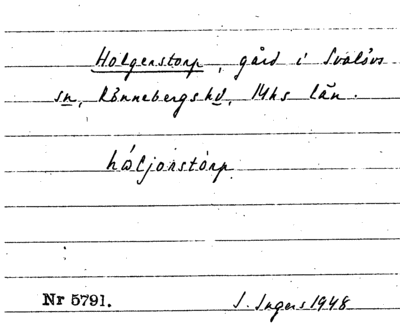 Holgerstorp, gård i Svalövs
sn, Rönnebergs hd, Mhs län.
hǻljơnstȧrp.
Nr 5791.
I. Ingers 1948